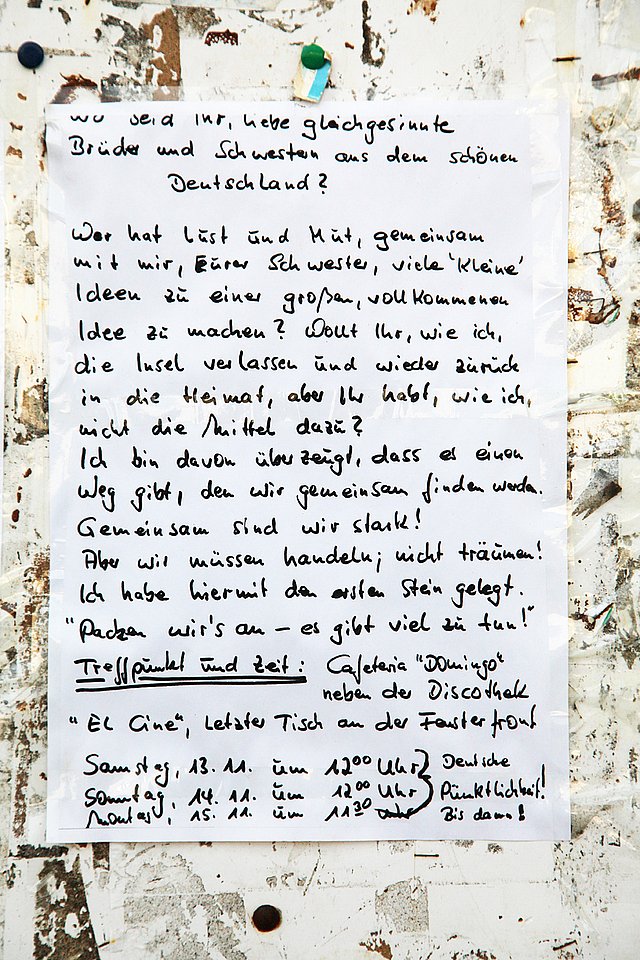 Wo seid Ihr, liebe gleichgesinnte
Brüder und Schwestern aus dem schönen
Deutschland?
Wer hat Lust und Mut, gemeinsam
mit mir, Eurer Schwester, viele 'Kleine'
Ideen zu einer großen, vollkommenen
Idee zu machen? Wollt Ihr, wie ich,
die Insel verlassen und wieder zurück
in die Heimat, aber Ihr habt, wie ich,
nicht die Mittel dazu?
Ich bin davon überzeugt, dass es einen
Weg gibt, den wir gemeinsam finden werden.
Gemeinsam sind wir stark!
Aber wir müssen handeln; nicht träumen!
Ich habe hiermit den ersten Stein gelegt.
"Packen wir's an – es gibt viel zu tun!"
Treffpunkt und Zeit: Cafeteria "Domingo"
neben der Discothek
"El Cine", letzter Tisch an der Fensterfront
Samstag, 13. 11. um 12⁰⁰ Uhr } Deutsche
Sonntag, 14. 11. um 12⁰⁰ Uhr } Pünktlichkeit!
Montag, 15. 11. um 11³⁰ Uhr } Bis dann!